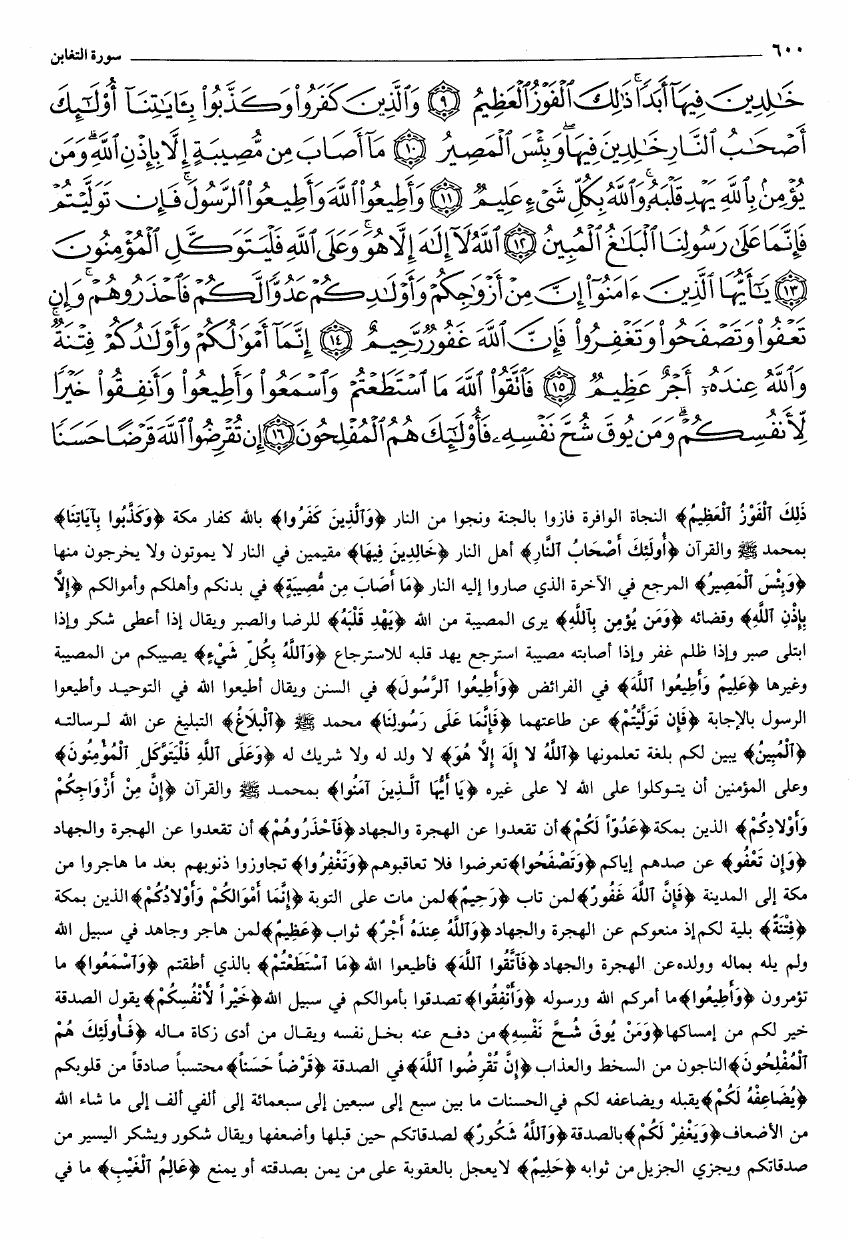 ٦٠٠
سورة التغابن
خَٰلِدِينَ فِيهَآ أَبَدًا ۚ ذَٰلِكَ ٱلْفَوْزُ ٱلْعَظِيمُ ٩ وَٱلَّذِينَ كَفَرُوا۟ وَكَذَّبُوا۟ بِـَٔايَٰتِنَآ أُو۟لَٰٓئِكَ
أَصْحَٰبُ ٱلنَّارِ خَٰلِدِينَ فِيهَا ۖ وَبِئْسَ ٱلْمَصِيرُ ١٠ مَآ أَصَابَ مِن مُّصِيبَةٍ إِلَّا بِإِذْنِ ٱللَّهِ ۗ وَمَن
يُؤْمِنۢ بِٱللَّهِ يَهْدِ قَلْبَهُۥ ۚ وَٱللَّهُ بِكُلِّ شَىْءٍ عَلِيمٌ ١١ وَأَطِيعُوا۟ ٱللَّهَ وَأَطِيعُوا۟ ٱلرَّسُولَ ۚ فَإِن تَوَلَّيْتُمْ
فَإِنَّمَا عَلَىٰ رَسُولِنَا ٱلْبَلَٰغُ ٱلْمُبِينُ ١٢ ٱللَّهُ لَآ إِلَٰهَ إِلَّا هُوَ ۚ وَعَلَى ٱللَّهِ فَلْيَتَوَكَّلِ ٱلْمُؤْمِنُونَ
١٣ يَٰٓأَيُّهَا ٱلَّذِينَ ءَامَنُوٓا۟ إِنَّ مِنْ أَزْوَٰجِكُمْ وَأَوْلَٰدِكُمْ عَدُوًّا لَّكُمْ فَٱحْذَرُوهُمْ ۚ وَإِن
تَعْفُوا۟ وَتَصْفَحُوا۟ وَتَغْفِرُوا۟ فَإِنَّ ٱللَّهَ غَفُورٌ رَّحِيمٌ ١٤ إِنَّمَآ أَمْوَٰلُكُمْ وَأَوْلَٰدُكُمْ فِتْنَةٌ ۚ
وَٱللَّهُ عِندَهُۥٓ أَجْرٌ عَظِيمٌ ١٥ فَٱتَّقُوا۟ ٱللَّهَ مَا ٱسْتَطَعْتُمْ وَٱسْمَعُوا۟ وَأَطِيعُوا۟ وَأَنفِقُوا۟ خَيْرًا
لِّأَنفُسِكُمْ ۗ وَمَن يُوقَ شُحَّ نَفْسِهِۦ فَأُو۟لَٰٓئِكَ هُمُ ٱلْمُفْلِحُونَ ١٦ إِن تُقْرِضُوا۟ ٱللَّهَ قَرْضًا حَسَنًا
ذَلِكَ ٱلْفَوْزُ ٱلْعَظِيمُ﴾ النجاة الوافرة فازوا بالجنة ونجوا من النار ﴿وَٱلَّذِينَ كَفَرُوا﴾ بالله كفار مكة ﴿وَكَذَّبُوا بِآيَاتِنَا﴾
بمحمد ﷺ والقرآن ﴿أُولَئِكَ أَصْحَابُ ٱلنَّارِ﴾ أهل النار ﴿خَالِدِينَ فِيهَا﴾ مقيمين في النار لا يموتون ولا يخرجون منها
﴿وَبِئْسَ ٱلْمَصِيرُ﴾ المرجع في الآخرة الذي صاروا إليه النار ﴿مَا أَصَابَ مِن مُّصِيبَةٍ﴾ في بدنكم وأهلكم وأموالكم ﴿إِلَّا
بِإِذْنِ ٱللَّهِ﴾ وقضائه ﴿وَمَن يُؤْمِن بِٱللَّهِ﴾ يرى المصيبة من الله ﴿يَهْدِ قَلْبَهُ﴾ للرضا والصبر ويقال إذا أعطى شكر وإذا
ابتلى صبر وإذا ظلم غفر وإذا أصابته مصيبة استرجع يهد قلبه للاسترجاع ﴿وَٱللَّهُ بِكُلِّ شَيْءٍ﴾ يصيبكم من المصيبة
وغيرها ﴿عَلِيمٌ وَأَطِيعُوا ٱللَّهَ﴾ في الفرائض ﴿وَأَطِيعُوا ٱلرَّسُولَ﴾ في السنن ويقال أطيعوا الله في التوحيد وأطيعوا
الرسول بالإجابة ﴿فَإِن تَوَلَّيْتُمْ﴾ عن طاعتهما ﴿فَإِنَّمَا عَلَى رَسُولِنَا﴾ محمد ﷺ ﴿ٱلْبَلَاغُ﴾ التبليغ عن الله لرسالته
﴿ٱلْمُبِينُ﴾ يبين لكم بلغة تعلمونها ﴿ٱللَّهُ لا إِلَهَ إِلَّا هُوَ﴾ لا ولد له ولا شريك له ﴿وَعَلَى ٱللَّهِ فَلْيَتَوَكَّلِ ٱلْمُؤْمِنُونَ﴾
وعلى المؤمنين أن يتوكلوا على الله لا على غيره ﴿يَا أَيُّهَا ٱلَّذِينَ آمَنُوا﴾ بمحمد ﷺ والقرآن ﴿إِنَّ مِنْ أَزْوَاجِكُمْ
وَأَوْلادِكُمْ﴾ الذين بمكة ﴿عَدُوّاً لَكُمْ﴾ أن تقعدوا عن الهجرة والجهاد ﴿فَٱحْذَرُوهُمْ﴾ أن تقعدوا عن الهجرة والجهاد
﴿وَإِن تَعْفُو﴾ عن صدهم إياكم ﴿وَتَصْفَحُوا﴾ تعرضوا فلا تعاقبوهم ﴿وَتَغْفِرُوا﴾ تجاوزوا ذنوبهم بعد ما هاجروا من
مكة إلى المدينة ﴿فَإِنَّ ٱللَّهَ غَفُورٌ﴾ لمن تاب ﴿رَحِيمٌ﴾ لمن مات على التوبة ﴿إِنَّمَا أَمْوَالُكُمْ وَأَوْلادُكُمْ﴾ الذين بمكة
﴿فِتْنَةٌ﴾ بلية لكم إذ منعوكم عن الهجرة والجهاد ﴿وَٱللَّهُ عِنْدَهُ أَجْرٌ﴾ ثواب ﴿عَظِيمٌ﴾ لمن هاجر وجاهد في سبيل الله
ولم يله بماله وولده عن الهجرة والجهاد ﴿فَٱتَّقُوا ٱللَّهَ﴾ فأطيعوا الله ﴿مَا ٱسْتَطَعْتُمْ﴾ بالذي أطقتم ﴿وَٱسْمَعُوا﴾ ما
تؤمرون ﴿وَأَطِيعُوا﴾ ما أمركم الله ورسوله ﴿وَأَنْفِقُوا﴾ تصدقوا بأموالكم في سبيل الله ﴿خَيْراً لأَنْفُسِكُمْ﴾ يقول الصدقة
خير لكم من إمساكها ﴿وَمَنْ يُوقَ شُحَّ نَفْسِهِ﴾ من دفع عنه بخل نفسه ويقال من أدى زكاة ماله ﴿فَأُولَئِكَ هُمُ
ٱلْمُفْلِحُونَ﴾ الناجون من السخط والعذاب ﴿إِنَّ تُقْرِضُوا ٱللَّهَ﴾ في الصدقة ﴿قَرْضاً حَسَناً﴾ محتسباً صادقاً من قلوبكم
﴿يُضَاعِفْهُ لَكُمْ﴾ يقبله ويضاعفه لكم في الحسنات ما بين سبع إلى سبعين إلى سبعمائة إلى ألفي ألف إلى ما شاء الله
من الأضعاف ﴿وَيَغْفِرْ لَكُمْ﴾ بالصدقة ﴿وَٱللَّهُ شَكُورٌ﴾ لصدقاتكم حين قبلها وأضعفها ويقال شكور ويشكر اليسير من
صدقاتكم ويجزي الجزيل من ثوابه ﴿حَلِيمٌ﴾ لا يعجل بالعقوبة على من يمن بصدقته أو يمنع ﴿عَالِمُ ٱلْغَيْبِ﴾ ما في